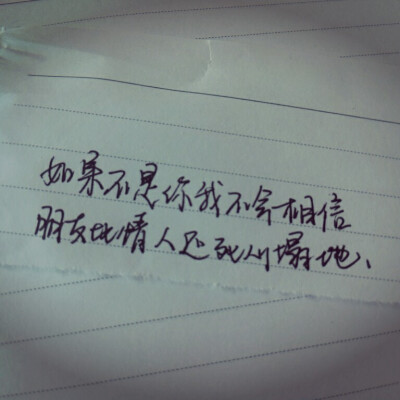 如果不是你我不会相信
朋友比情人还死心塌地、